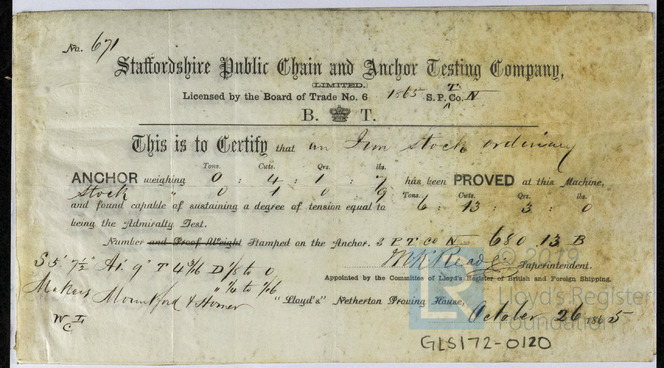 No. 671
Staffordshire Public Chain and Anchor Testing Company,
(LIMITED.)
Licensed by the Board of Trade No. 6 1865 S. P. T. Co. N
B. T.
This is to Certify that an Iron Stock ordinary
Tons. Cwts. Qrs. lbs.
ANCHOR weighing 0 : 4 : 1 : 7 has been PROVED at this Machine,
Stock " 0 1 0 9 Tons. Cwts. Qrs. lbs.
and found capable of sustaining a degree of tension equal to 6 : 13 : 3 : 0
being the Admiralty Test.
Number and Proof Weight Stamped on the Anchor. S P T CO N 680.13 B
Superintendent.
Appointed by the Committee of Lloyd's Register of British and Foreign Shipping.
Makers Mountford & Homer
"Lloyd's" Netherton Proving House,
October 26 1865
GLS172-0120
Lloyd's Register
Foundation